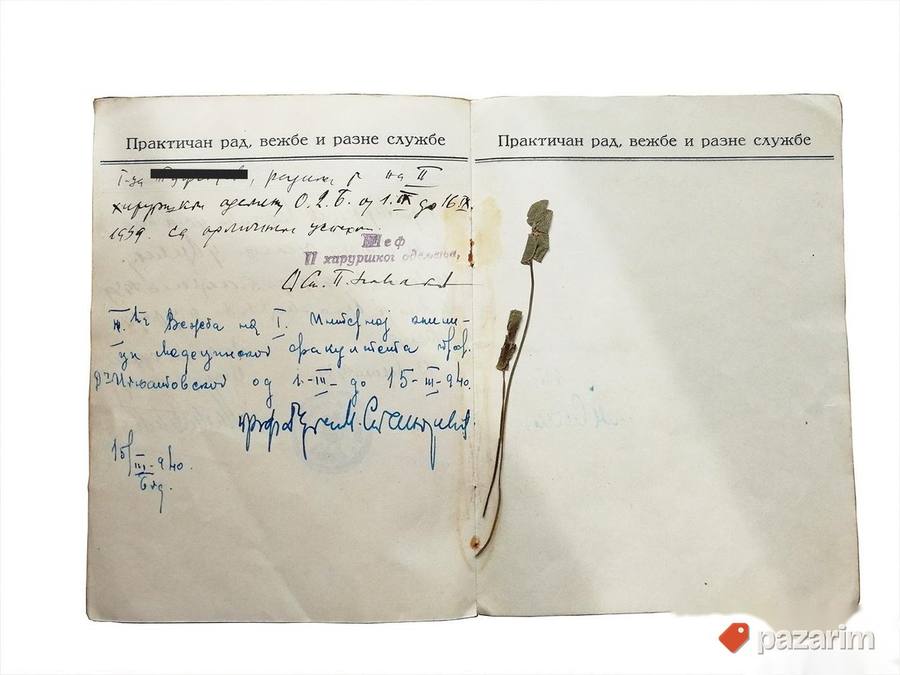 Практичан рад, вежбе и разне службе
Г-ђа радила је на II
хируршком одељењу О.Д.Б. од 1.IX до 16.IX.
1939. са одличним успехом.
Шеф
II хируршког одељења,
III. Вежба на I. Интерној клини-
ци Медецинског факултета Проф.
Др Игњатовског од 1-III- до 15-III-940.
Проф. М.
15/III-940.
Бгд.
Практичан рад, вежбе и разне службе
pazarim